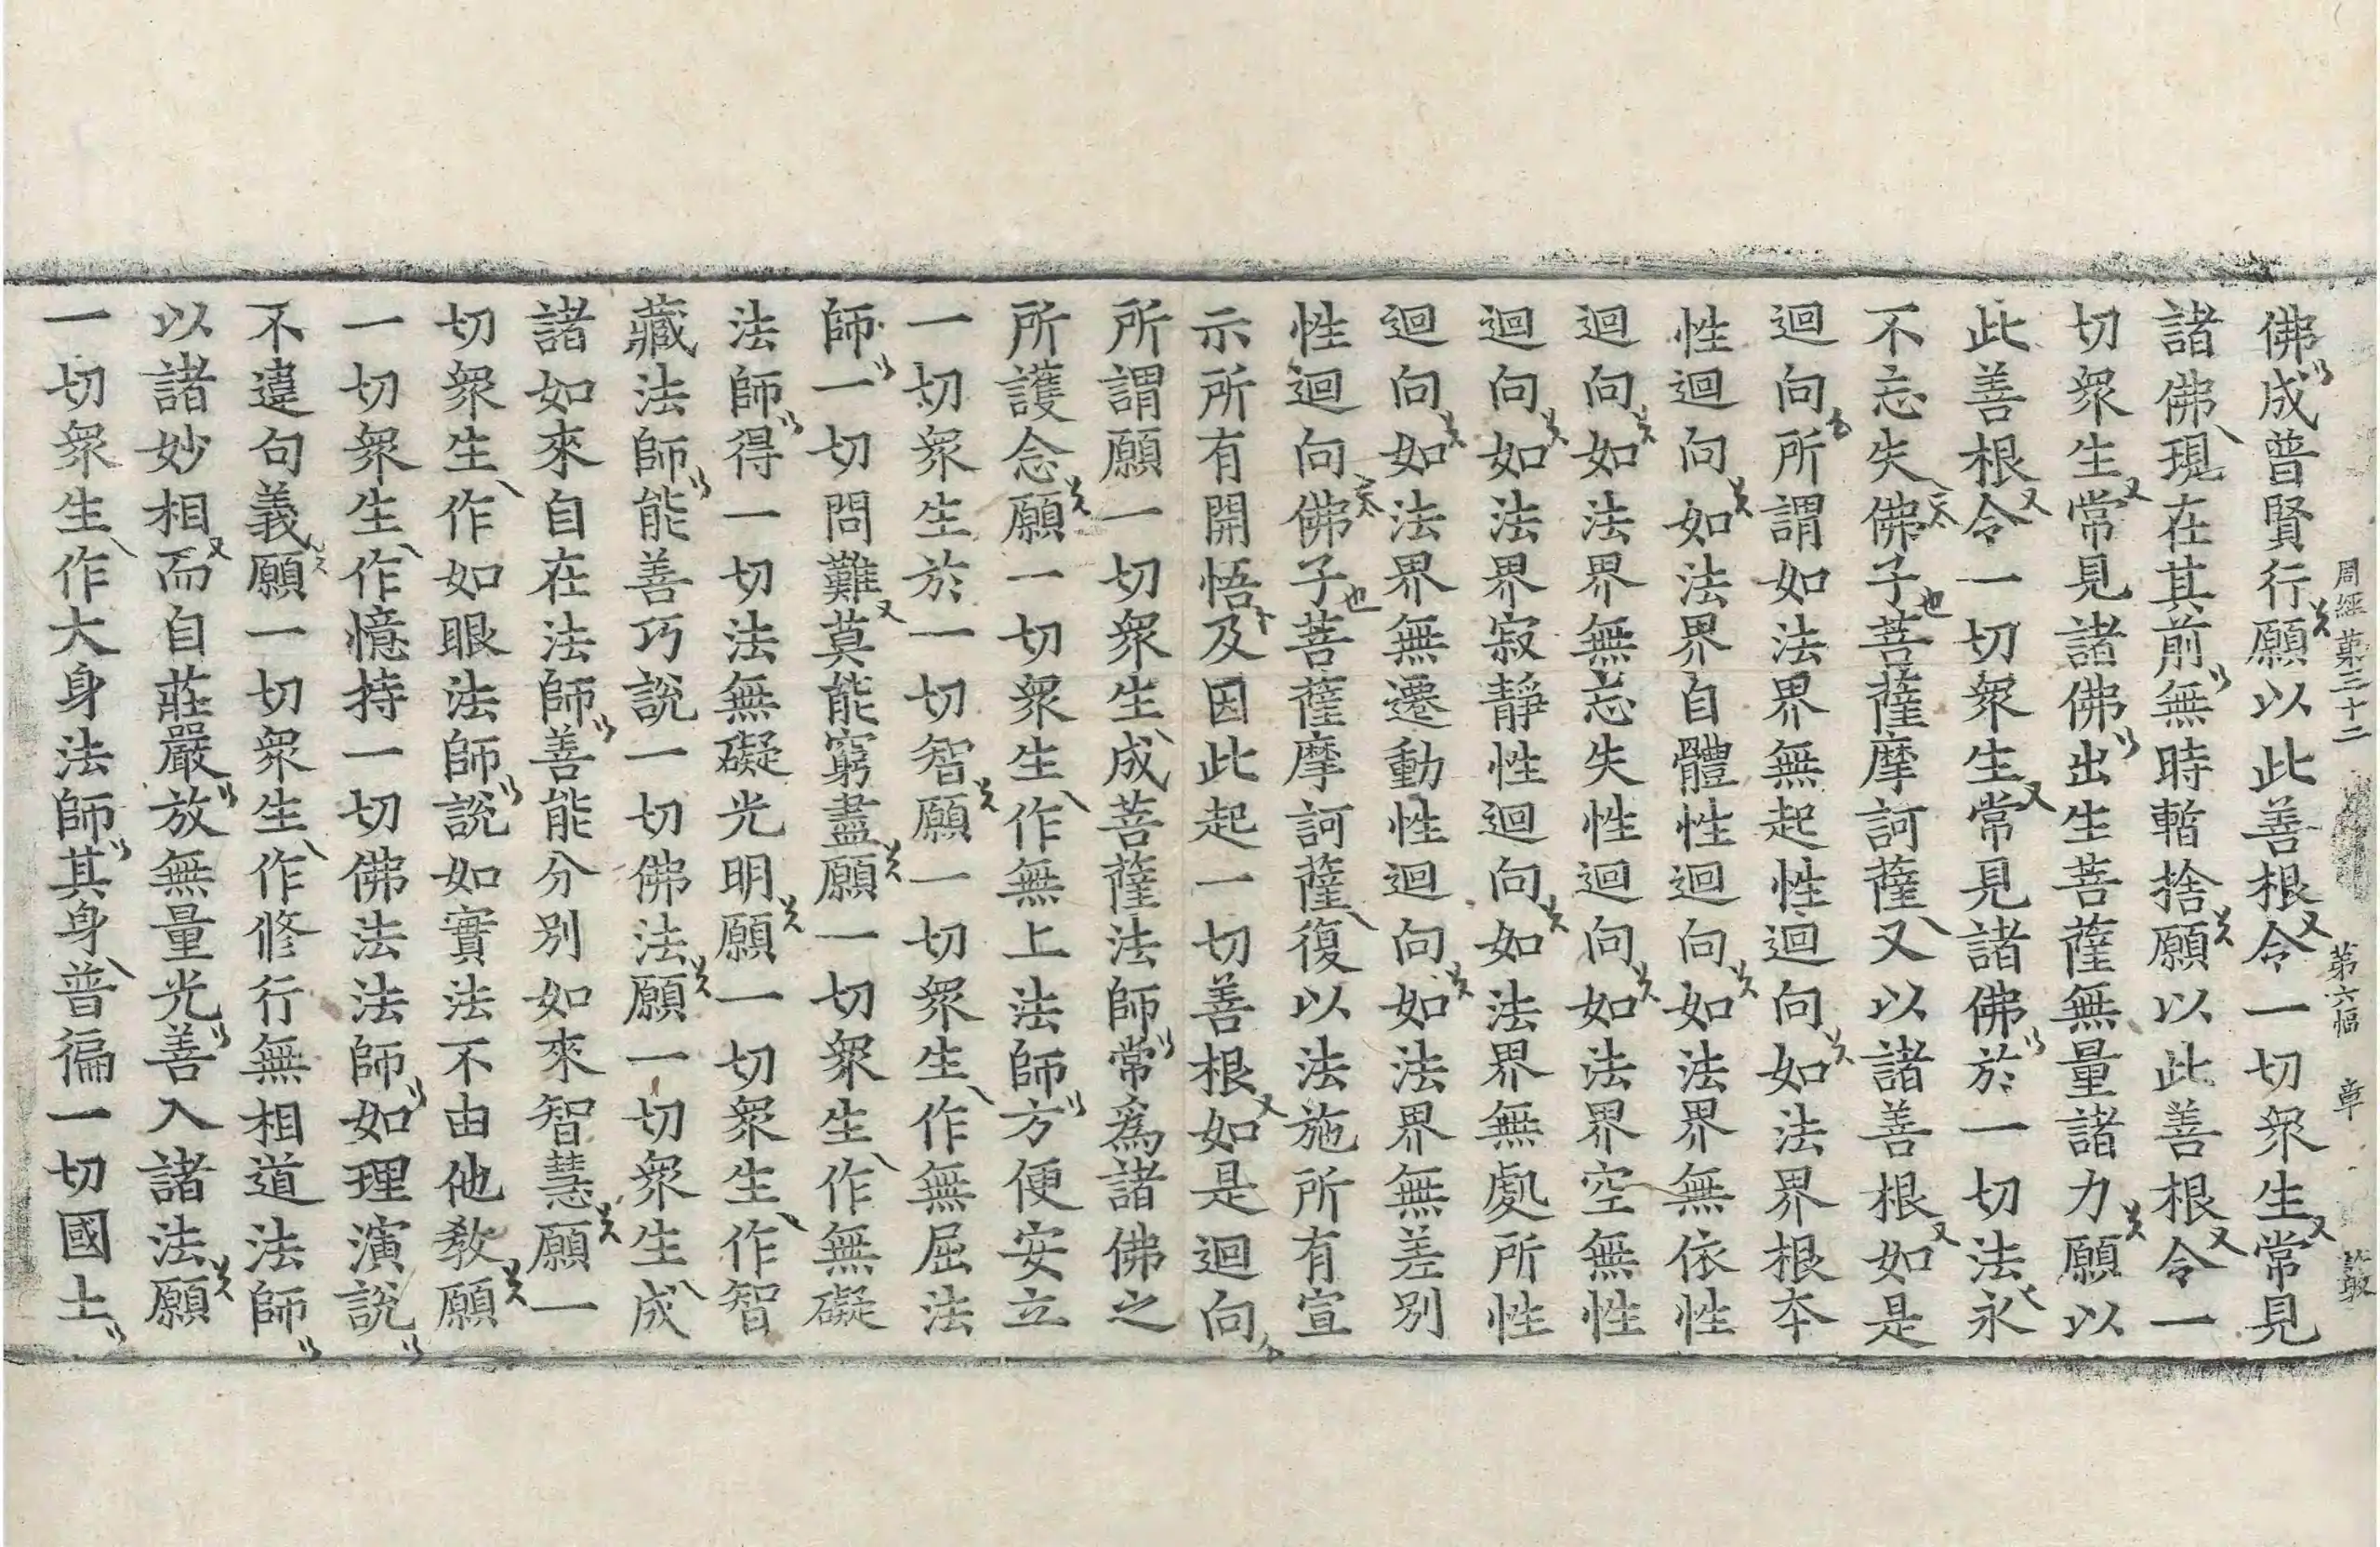 周經第三十二 第六幅 章 叢
佛成普賢行願以此善根令一切衆生常見
諸佛現在其前無時暫捨願以此善根令一
切衆生常見諸佛出生菩薩無量諸力願以
此善根令一切衆生常見諸佛於一切法永
不忘失佛子菩薩摩訶薩又以諸善根如是
迴向所謂如法界無起性迴向如法界根本
性迴向如法界自體性迴向如法界無依性
迴向如法界無忘失性迴向如法界空無性
迴向如法界寂靜性迴向如法界無處所性
迴向如法界無遷動性迴向如法界無差別
性迴向佛子菩薩摩訶薩復以法施所有宣
示所有開悟及因此起一切善根如是迴向
所謂願一切衆生成菩薩法師常爲諸佛之
所護念願一切衆生作無上法師方便安立
一切衆生於一切智願一切衆生作無屈法
師一切問難莫能窮盡願一切衆生作無礙
法師得一切法無礙光明願一切衆生作智
藏法師能善巧說一切佛法願一切衆生成
諸如來自在法師善能分別如來智慧願一
切衆生作如眼法師說如實法不由他教願
一切衆生作憶持一切佛法法師如理演說
不違句義願一切衆生作修行無相道法師
以諸妙相而自莊嚴放無量光善入諸法願
一切衆生作大身法師其身普徧一切國土